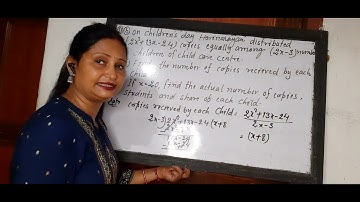 on children's day Harinarayan distributed
(2x²+13x-24) copies equally among (2x-3) number
children of child care centre.
find the number of copies recieved by each
If x=20, find the actual number of copies,
students and share of each child.
copies recieved by each child = 2x²+13x-24
2x-3
2x-3)2x²+13x-24(x+8
= (x+8)